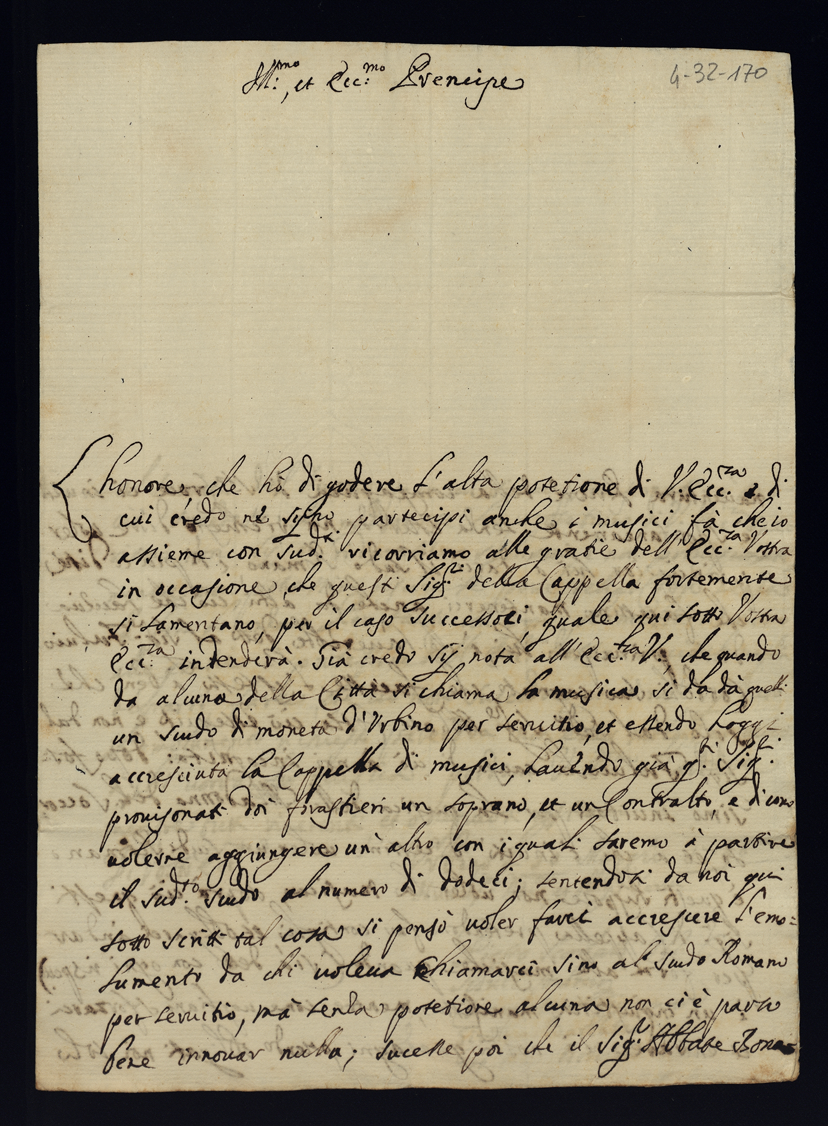 Ill:mo, et Ecc:mo Prencipe
4-32-170
L'honore, che hò di godere l'alta potetione di V. Ecc:za e di
cui credo ne sijno partecipi anche i musici fà che io
assieme con sud:ti ricorriamo alle gratie dell'Ecc:za Vostra
in occasione che questi Sig:ri della Cappella fortemente
si lamentano, per il caso successoci, quale qui sotto Vostra
Ecc:za intenderà. Già credo sij nota all'Ecc:za V:, che quando
da alcuno della Città si chiama la musica si dà à quelli
un scudo di moneta d'Urbino per servitio, et essendo hoggi
accresciuta la Cappella di musici, havendo già q:ti Sig:ri
provisonati doi forastieri un soprano, et un Contralto, e dicono
volerne aggiungere un'altro con i quali saremo à partire
il sud:to scudo al numero di dodeci; sentendosi da noi qui
sotto scritti tal cosa si pensò voler farci accrescere l'emo=
lumento da chi voleva chiamarci sino al scudo Romano
per servitio, mà senza potetione alcuna non ci è parso
bene innovar nulla; sucesse poi che il Sig:r Abbate Bona=